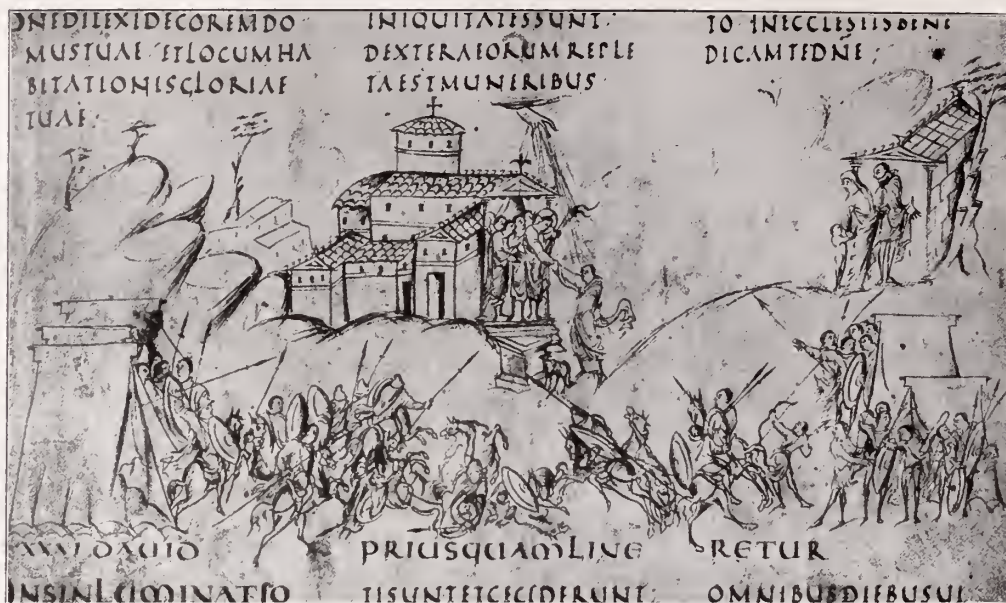 DNEDILEXIDECOREMDO
MUSTUAE ETLOCUMHA
BITATIONISGLORIAE
TUAE:
INIQUITATESSUNT·
DEXTERAEORUMREPLE
TAESTMUNERIBUS·
TO INECCLESIISBENE
DICAMTEDNE;
XXVI DAUID
PRIUSQUAMLINE
RETUR
DNSINLUMINATIO
TISUNTETCECIDERUNT:
OMNIBUSDIEBUSUI